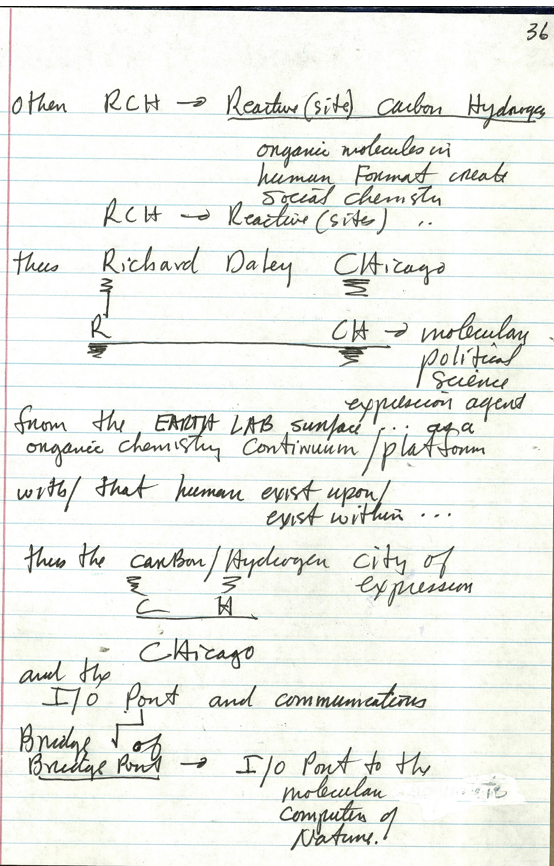 36
other RCH → Reactive (site) Carbon Hydrogen
organic molecules in
human Format create
Social chemistry
RCH → Reactive (sites) ..
thus Richard Daley CHicago
R CH → molecular
political
science
expression agent
from the EARTH LAB surface ... as a
organic chemistry continuum / platform
with/ that human exist upon/
exist within ...
thus the carbon/Hydrogen city of
expression
C H
CHicago
and the
I/O Port and communications
Bridge √ of
Bridge Port → I/O Port to the
molecular
computer of
Nature.!